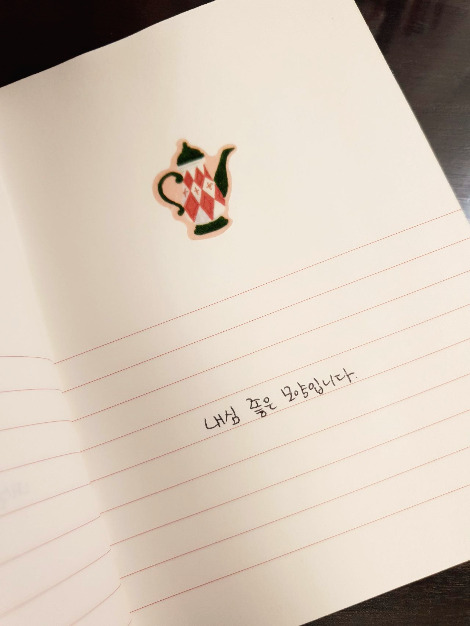 내심 쫊은 모양입니다.